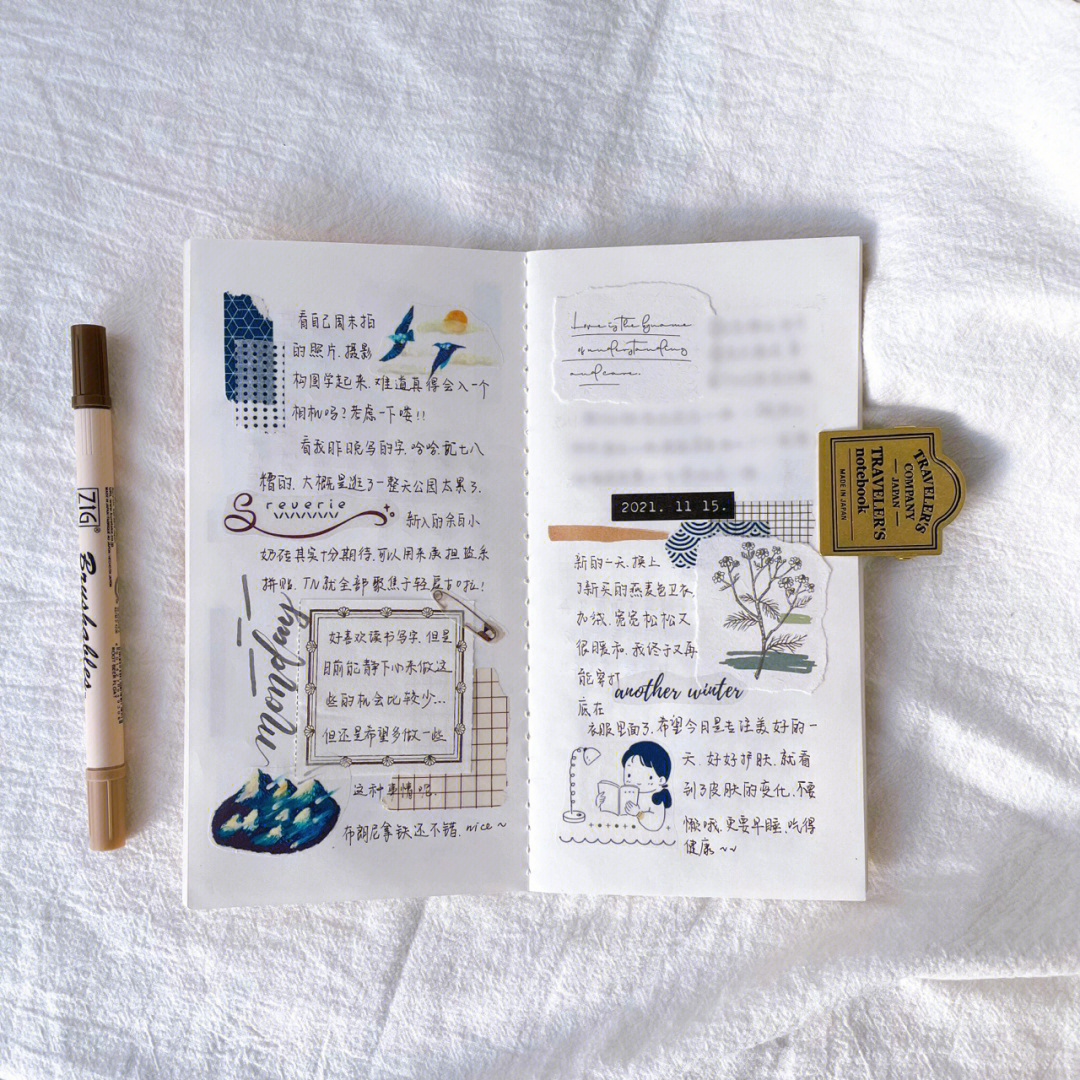 看自己周末拍
的照片,摄影
构图学起来,难道真得会入一个
相机吗?考虑一下喽!!
看我昨晚写的字,哈哈,乱七八
糟的,大概是逛了一整天公园太累了,
reverie
新入的余白小
奶砖其实十分期待,可以用来承担盐系
拼贴,TN就全部聚焦于轻复古啦!
symphony
好喜欢读书写字,但是
目前能静下心来做这
些的机会比较少...
但还是希望多做一些
这种事情呢,
布朗尼拿铁还不错,nice~
Love is the
of understanding
and care.
2021. 11 15.
新的一天,换上
了新买的燕麦色卫衣
九袋,宽宽松松又
很暖和,我终于又再
能穿打
底在
another winter
衣服里面了,希望今日是专注美好的一
天,好好护肤,就看
到了皮肤的变化,不要
懒哦,更要早睡,吃得
健康~~
TRAVELER'S
COMPANY
JAPAN
TRAVELER'S
notebook
MADE IN JAPAN
ZIG®
Brushables